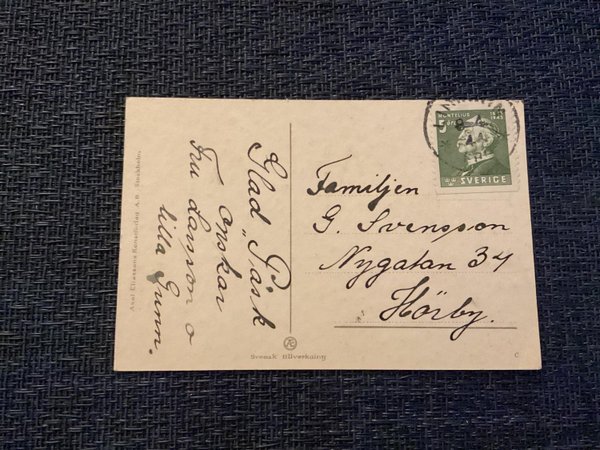 Glad Påsk
önskar
Fru Larsson o
lilla Gunn.
Axel Eliassons Konstförlag A.B. Stockholm.
Familjen
G. Svensson
Nygatan 34
Hörby.
MONTELIUS
5 öre
1843
1943
SVERIGE
Svensk tillverkning
Æ
C